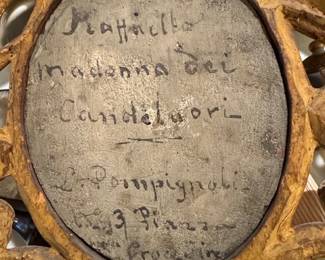 Raffaello
Madonna dei
Candelabri
L. Pompignoli
No 3 Piazza
S. Croce in